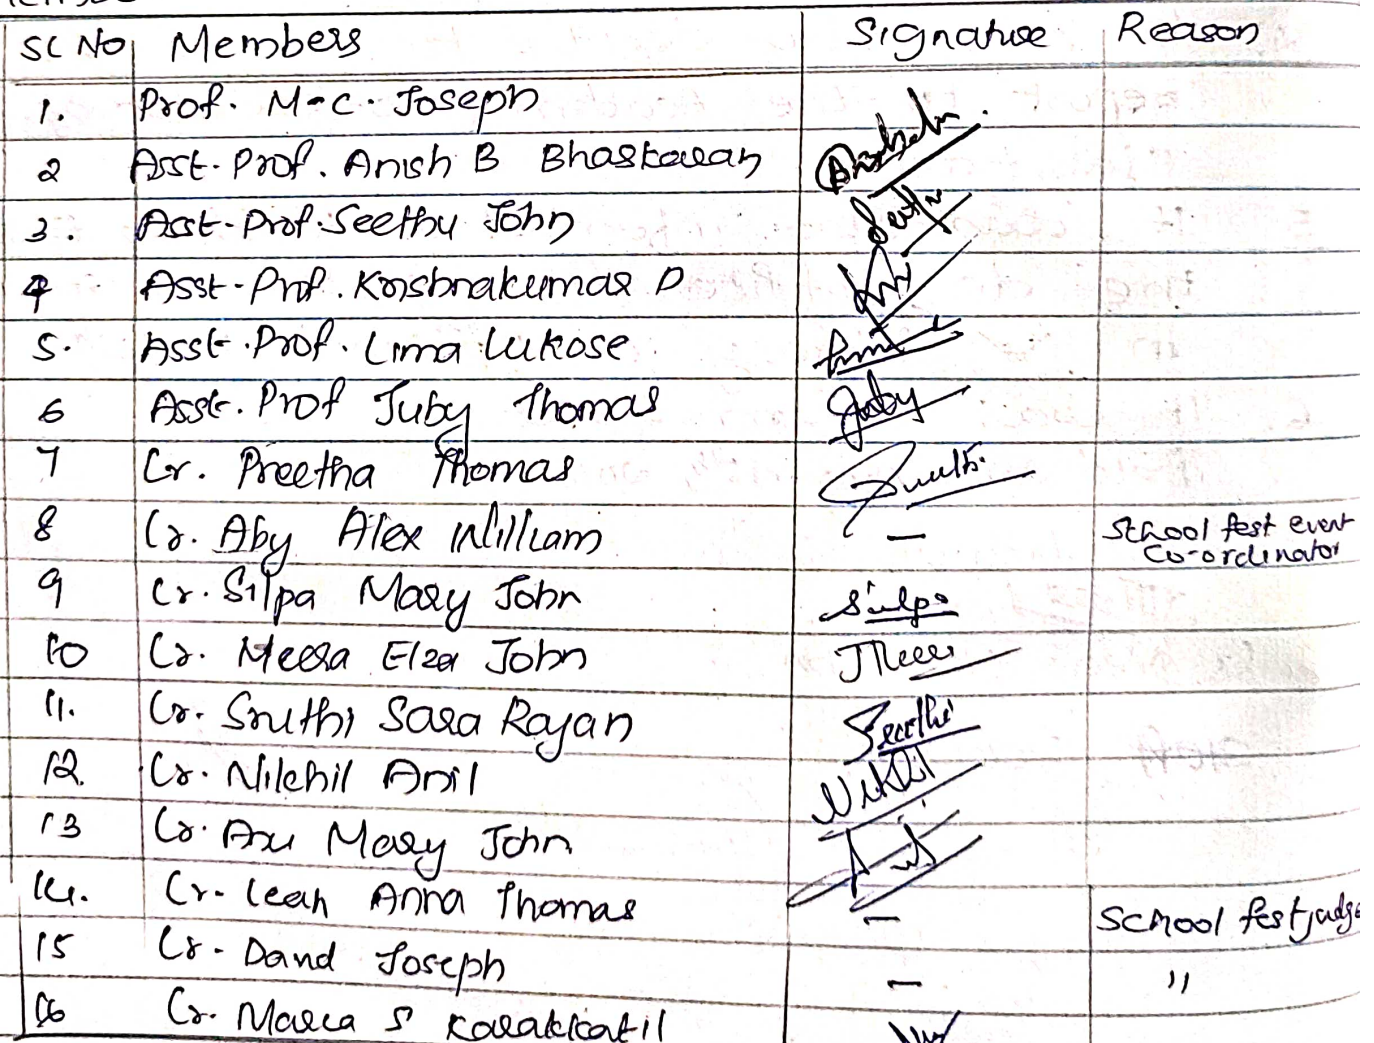 SL No Members Signature Reason
1. Prof. M.C. Joseph
2 Asst. Prof. Anish B Bhaskaran
3. Asst. Prof. Seethu John Seethu
4 Asst. Prof. Krishnakumar D
5. Asst. Prof. Lima Lukose
6 Asst. Prof Juby Thomas Juby
7 Cr. Preetha Thomas
8 Cr. Aby Alex William — School fest event
Co-ordinator
9 Cr. Silpa Mary John Silpa
10 Cr. Meera Elza John
11. Cr. Sruthi Sara Rajan Sruthi
12. Cr. Nikhil Anil Nikhil
13 Cr. Anu Mary John
14. Cr. Leah Anna Thomas — School fest judge
15 Cr. David Joseph — "
16 Cr. Maria S Karakkatil